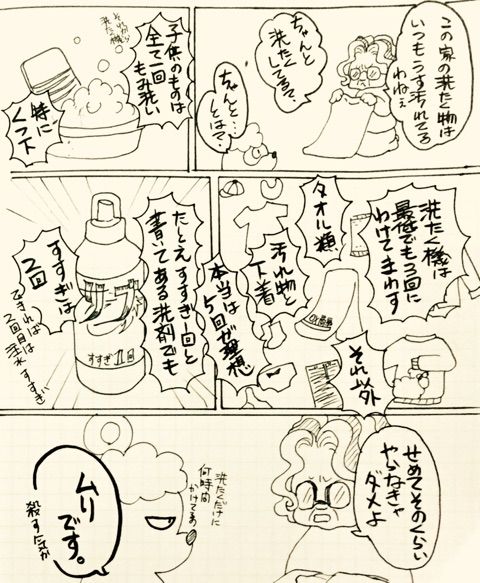 この家の洗たく物は
いつもうす汚れてる
わねぇ
ちゃんと
洗たく
してるって
ちゃんと…
とは?
子供のものは
全て一回
もみ洗い
特に
くつ下
それから
洗たく機
洗たく機は
最低でも3回に
わけてまわす
タオル類
汚れ物と
下着
それ以外
本当は
5回が理想
たとえすすぎ1回と
書いてある洗剤でも
すすぎは
2回
できれば
2回目は
注水すすぎ
すすぎ1回
せめてそのくらい
やらなきゃ
ダメよ
洗たくだけに
何時間
かけてる
ムリ
です。
殺す気か